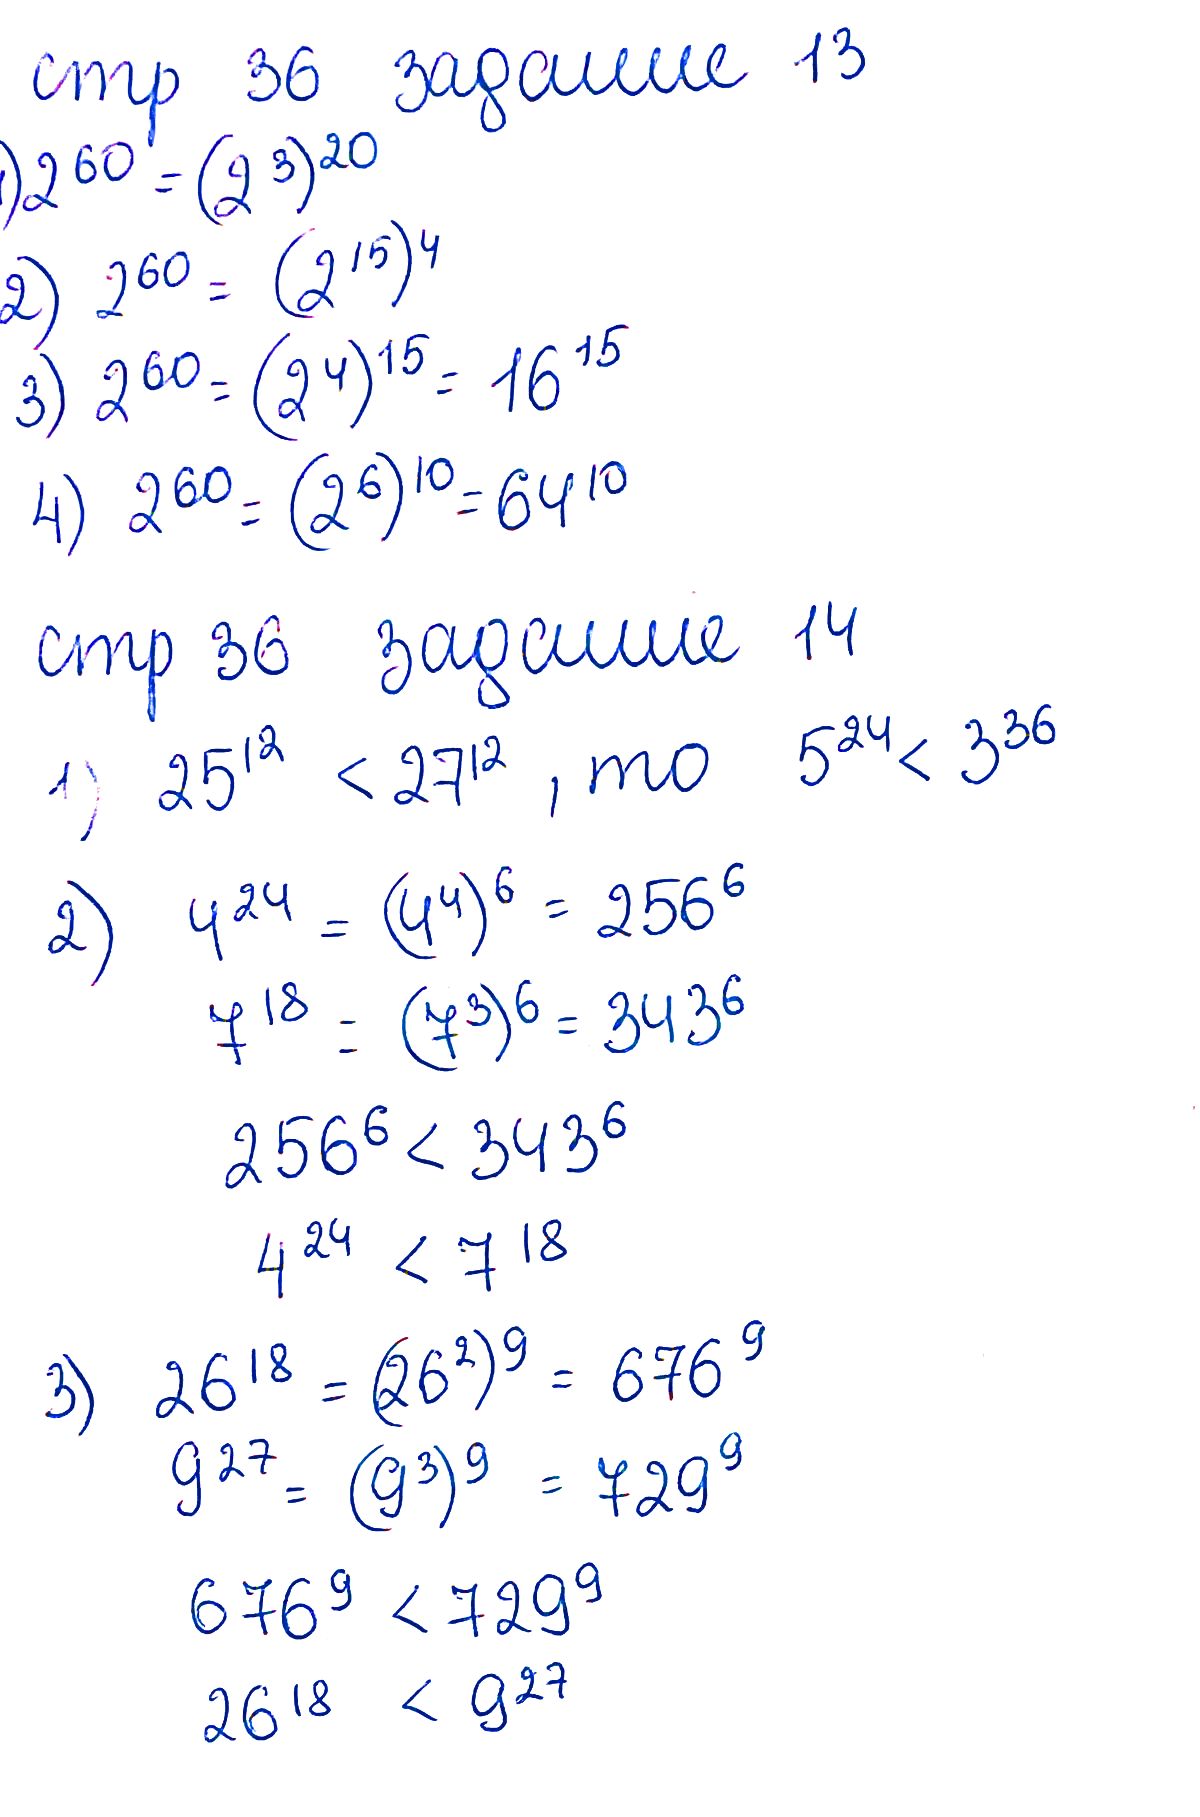 стр 36 задание 13
1) 2^60 = (2^3)^20
2) 2^60 = (2^15)^4
3) 2^60 = (2^4)^15 = 16^15
4) 2^60 = (2^6)^10 = 64^10
стр 36 задание 14
1) 25^12 < 27^12, то 5^24 < 3^36
2) 4^24 = (4^4)^6 = 256^6
7^18 = (7^3)^6 = 343^6
256^6 < 343^6
4^24 < 7^18
3) 26^18 = (26^2)^9 = 676^9
9^27 = (9^3)^9 = 729^9
676^9 < 729^9
26^18 < 9^27